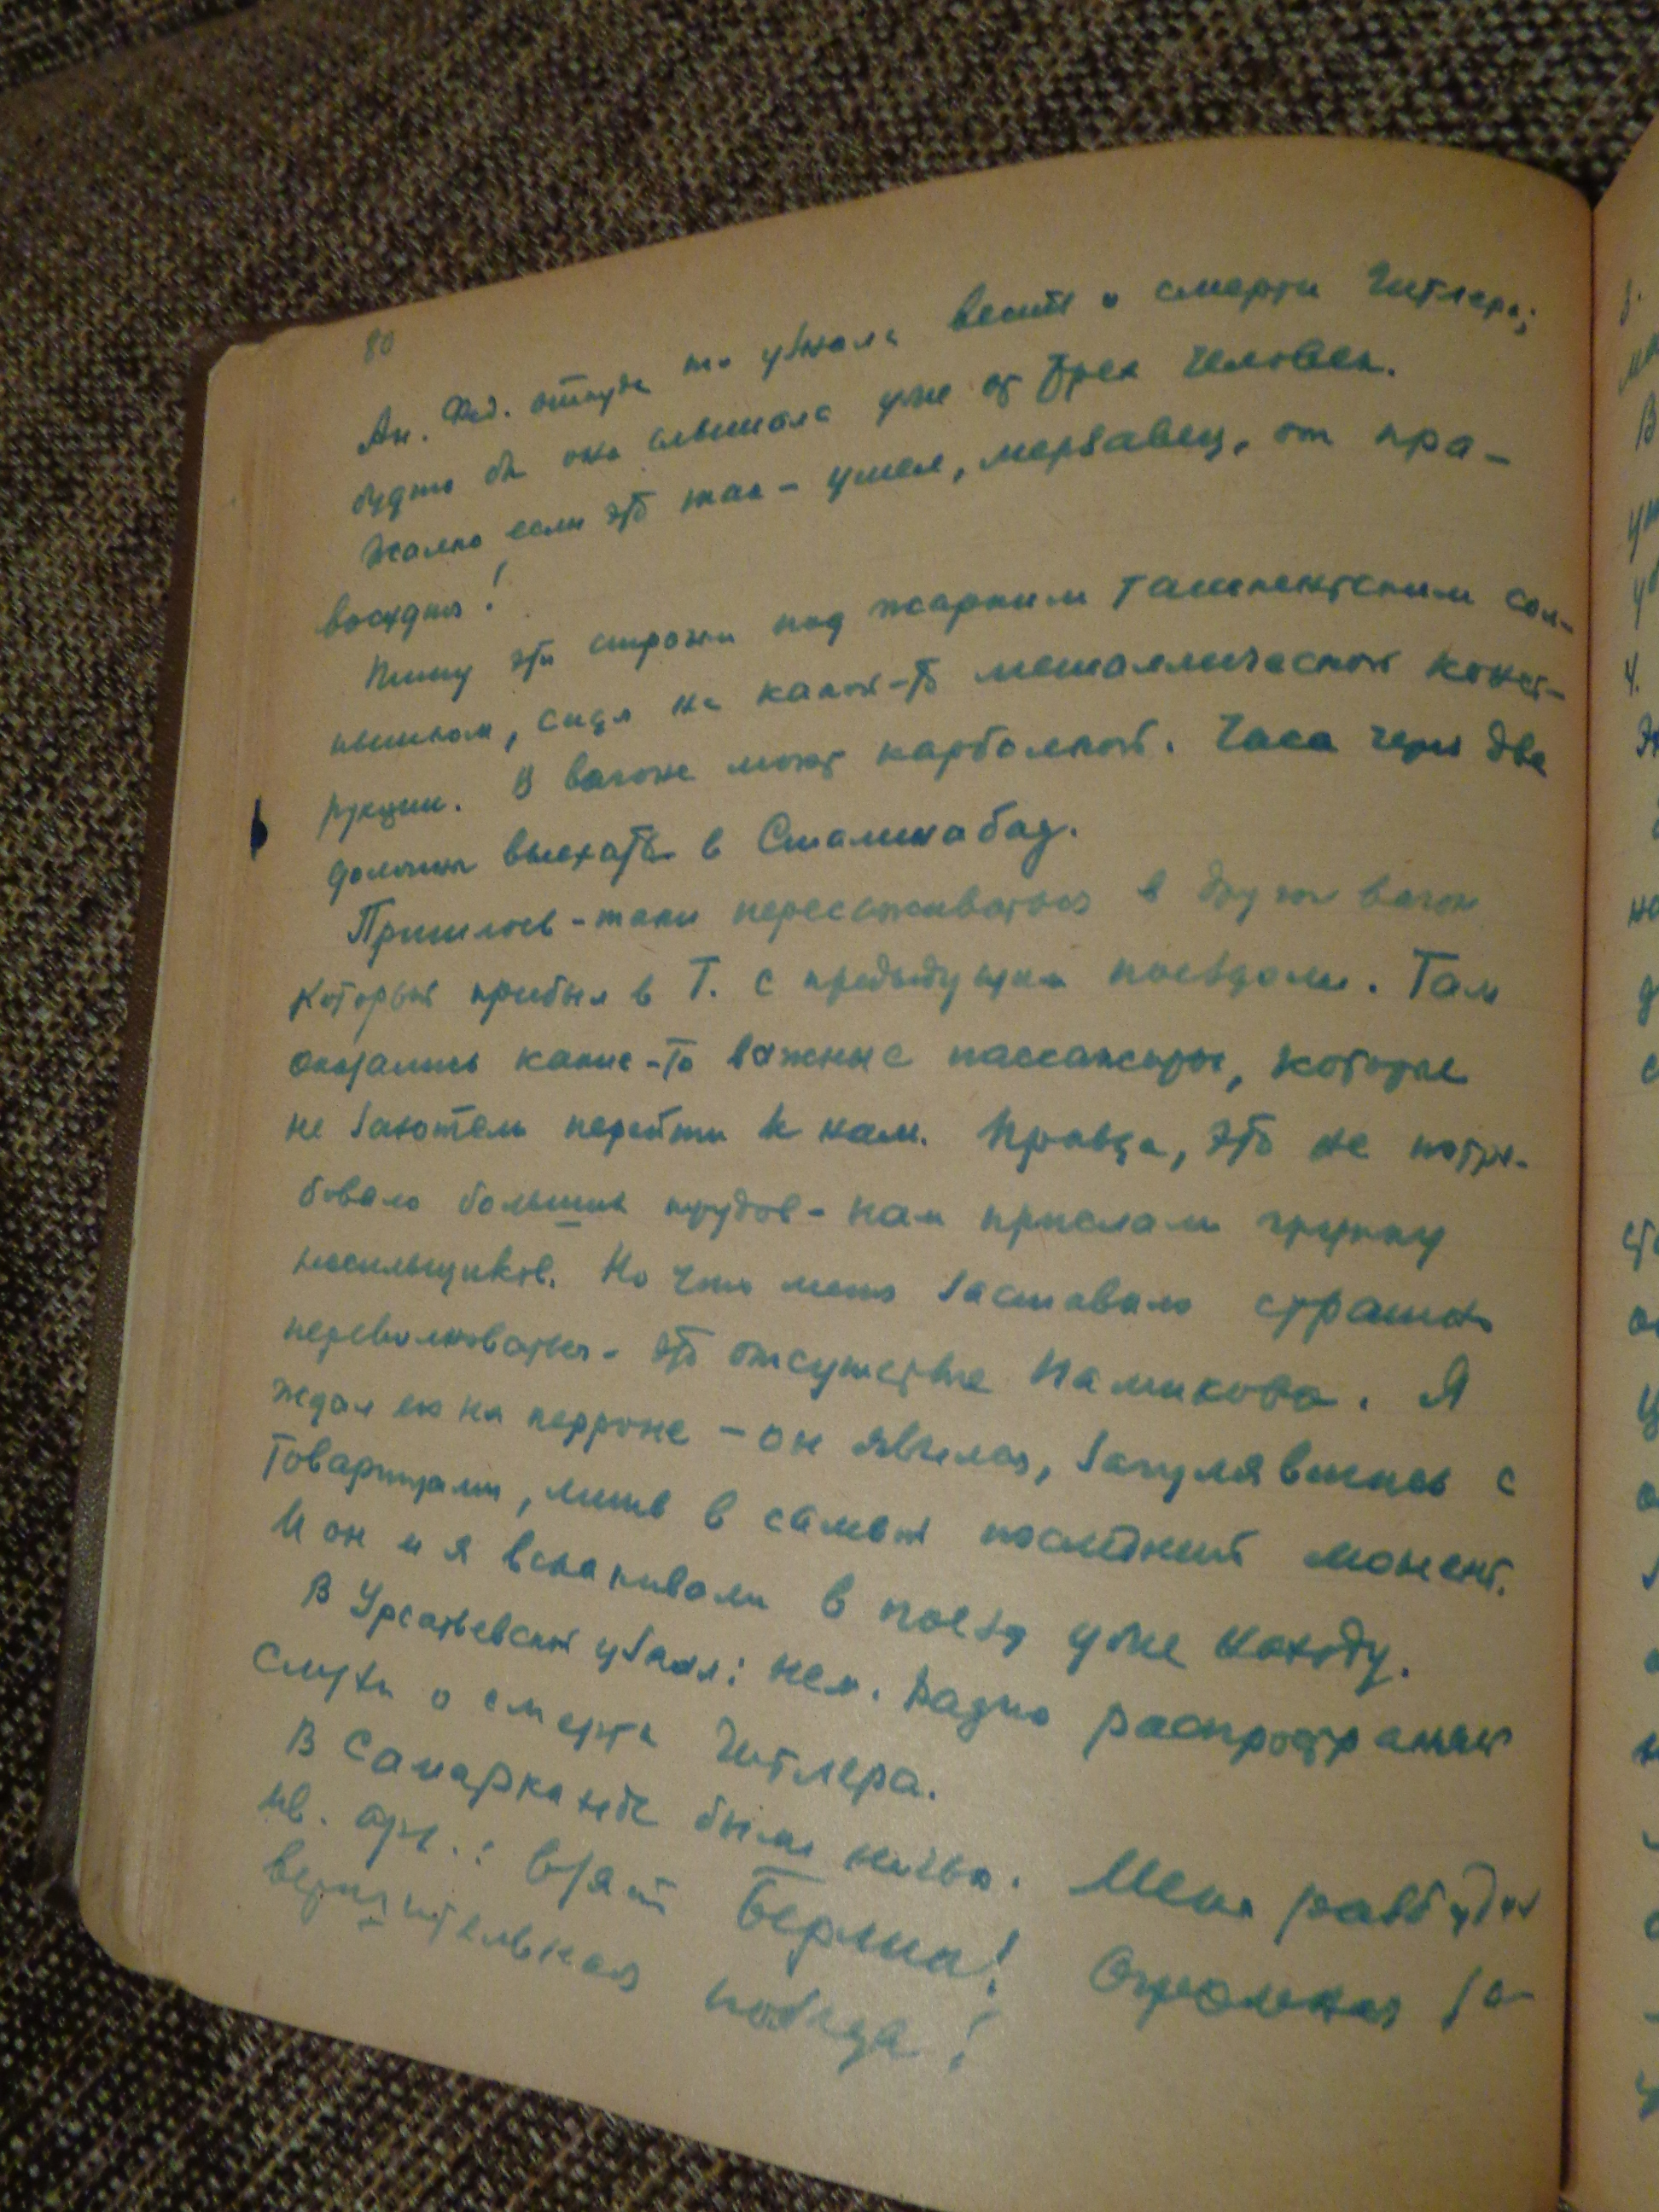 80
Ан. Фед. откуда то узнала весть о смерти Гитлера;
будто бы она слышала уже от трех человек.
Жалко если это так - ушел, мерзавец, от пра-
восудия!
Пишу эти строки под жарким Ташкентским сол-
нышком, сидя на какой-то металлической конст-
рукции. В вагоне моют карболкой. Часа через два
должны выехать в Сталинабад.
Пришлось-таки пересаживаться в другой вагон
который прибыл в Т. с предыдущим поездом. Там
оказались какие-то важные пассажиры, которые
не захотели перейти к нам. Правда, это не потре-
бовало больших трудов - нам прислали группу
носильщиков. Но что меня заставило страшно
переволноваться - это отсутствие Намикова. Я
ждал его на перроне - он явился, загулявшись с
товарищами, лишь в самый последний момент.
И он и я вскакивали в поезд уже на ходу.
В Урсатьевской узнал: нем. радио распространяет
слухи о смерти Гитлера.
В Самарканде были ночью. Меня разбудил
кв. арт.: взят Берлин! Огромная за-
вершительная победа!